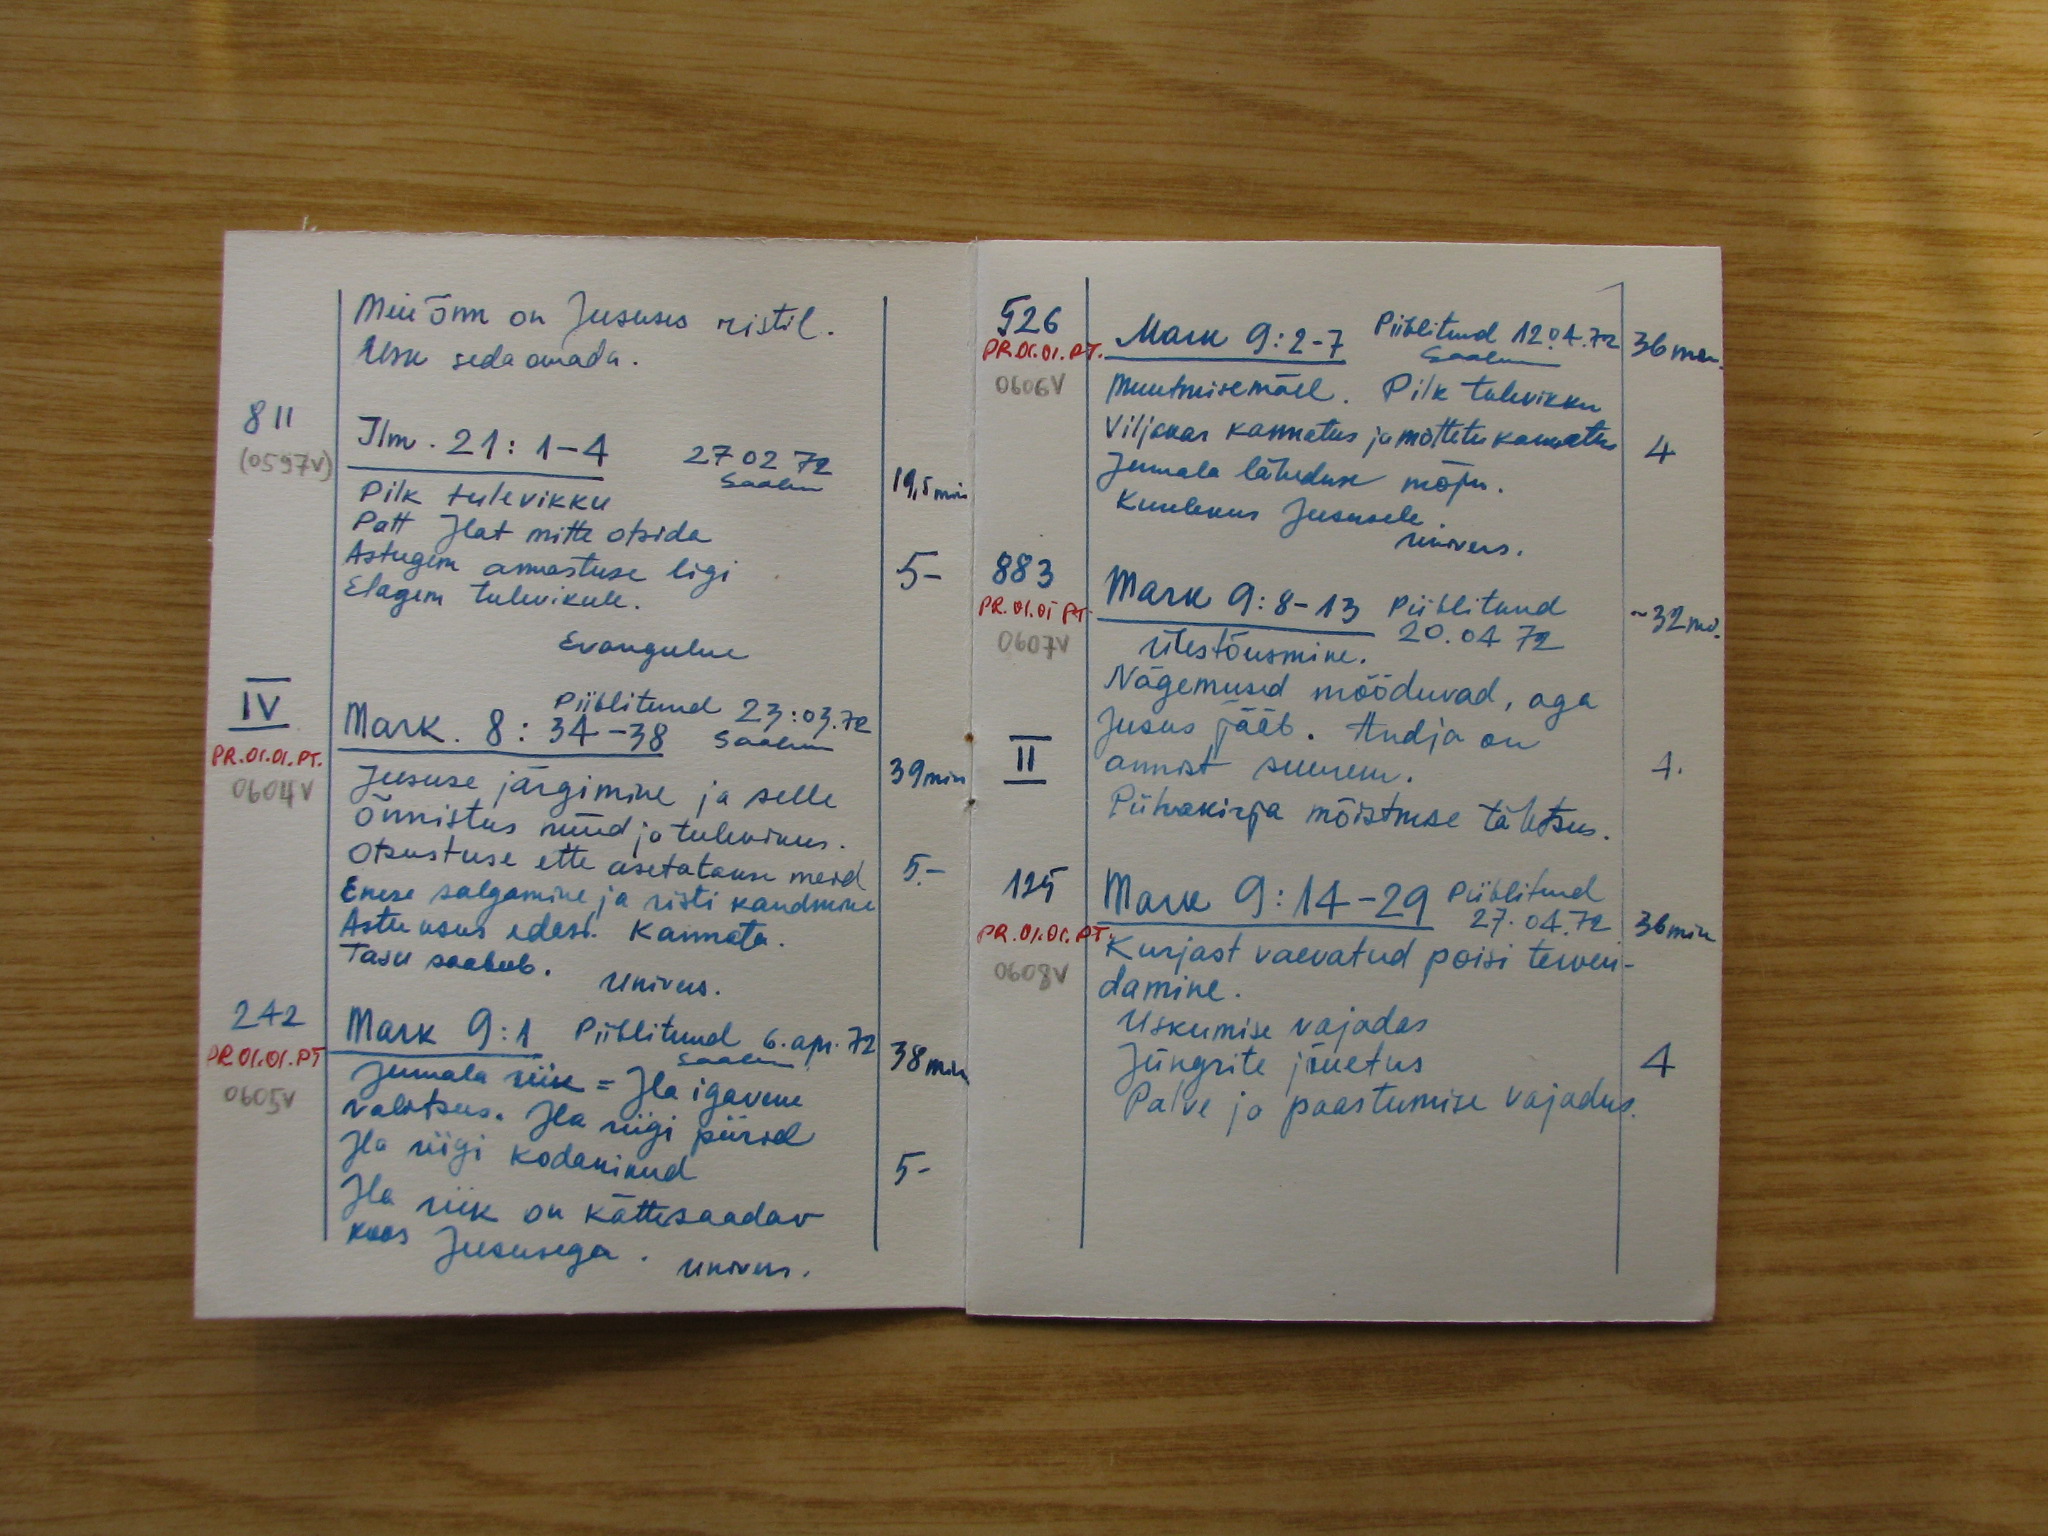 Meie õnn on Jeesuses ristil.
Usk seda omada.
811
(0597V)
Ilm. 21:1-4
27 02 72
19,5 min
Pilk tulevikku
Patt Jlat mitte otsida
Astugem armastuse ligi
5-
Elagem tulevikule.
IV
PR.01.01.PT.
0604V
Piiblitund 23.03.72
Mark. 8:34-38
39 min
Jeesuse järgimine ja selle
õnnistus nüüd ja tulevikus.
Otsustuse ette asetatakse meid
5.-
Enese salgamine ja risti kandmine
Astu usus edasi. Kannata.
Tasu saabub.
Univers.
242
PR.01.01.PT
0605V
Mark 9:1 Piiblitund 6. apr. 72
38 min
Jumala riik = Jla igavene
valitsus. Jla riigi piirid
Jla riigi kodanikud
5-
Jla riik on kättesaadav
koos Jeesusega.
Univers.
526
PR.01.01.PT.
0606V
Mark 9:2-7 Piiblitund 12.04.72
36 min
Muutmisemäel. Pilk tulevikku
Viljakas kannatus ja mõttetu kannatus
4
Jumala läheduse mõju.
Kuulekus Jeesusele.
Univers.
883
PR.01.01 PT.
0607V
Mark 9:8-13 Piiblitund
20.04 72
~32 min.
Ülestõusmine.
Nägemused mööduvad, aga
Jeesus jääb. Andja on
II
annist suurem.
4.
Pühakirja mõistmise tähtsus.
125
PR.01.01.PT.
0608V
Mark 9:14-29 Piiblitund
27.04.72
36 min
Kurjast vaevatud poisi terven-
damine.
Uskumise vajadus
Jüngrite jõuetus
4
Palve ja paastumise vajadus.